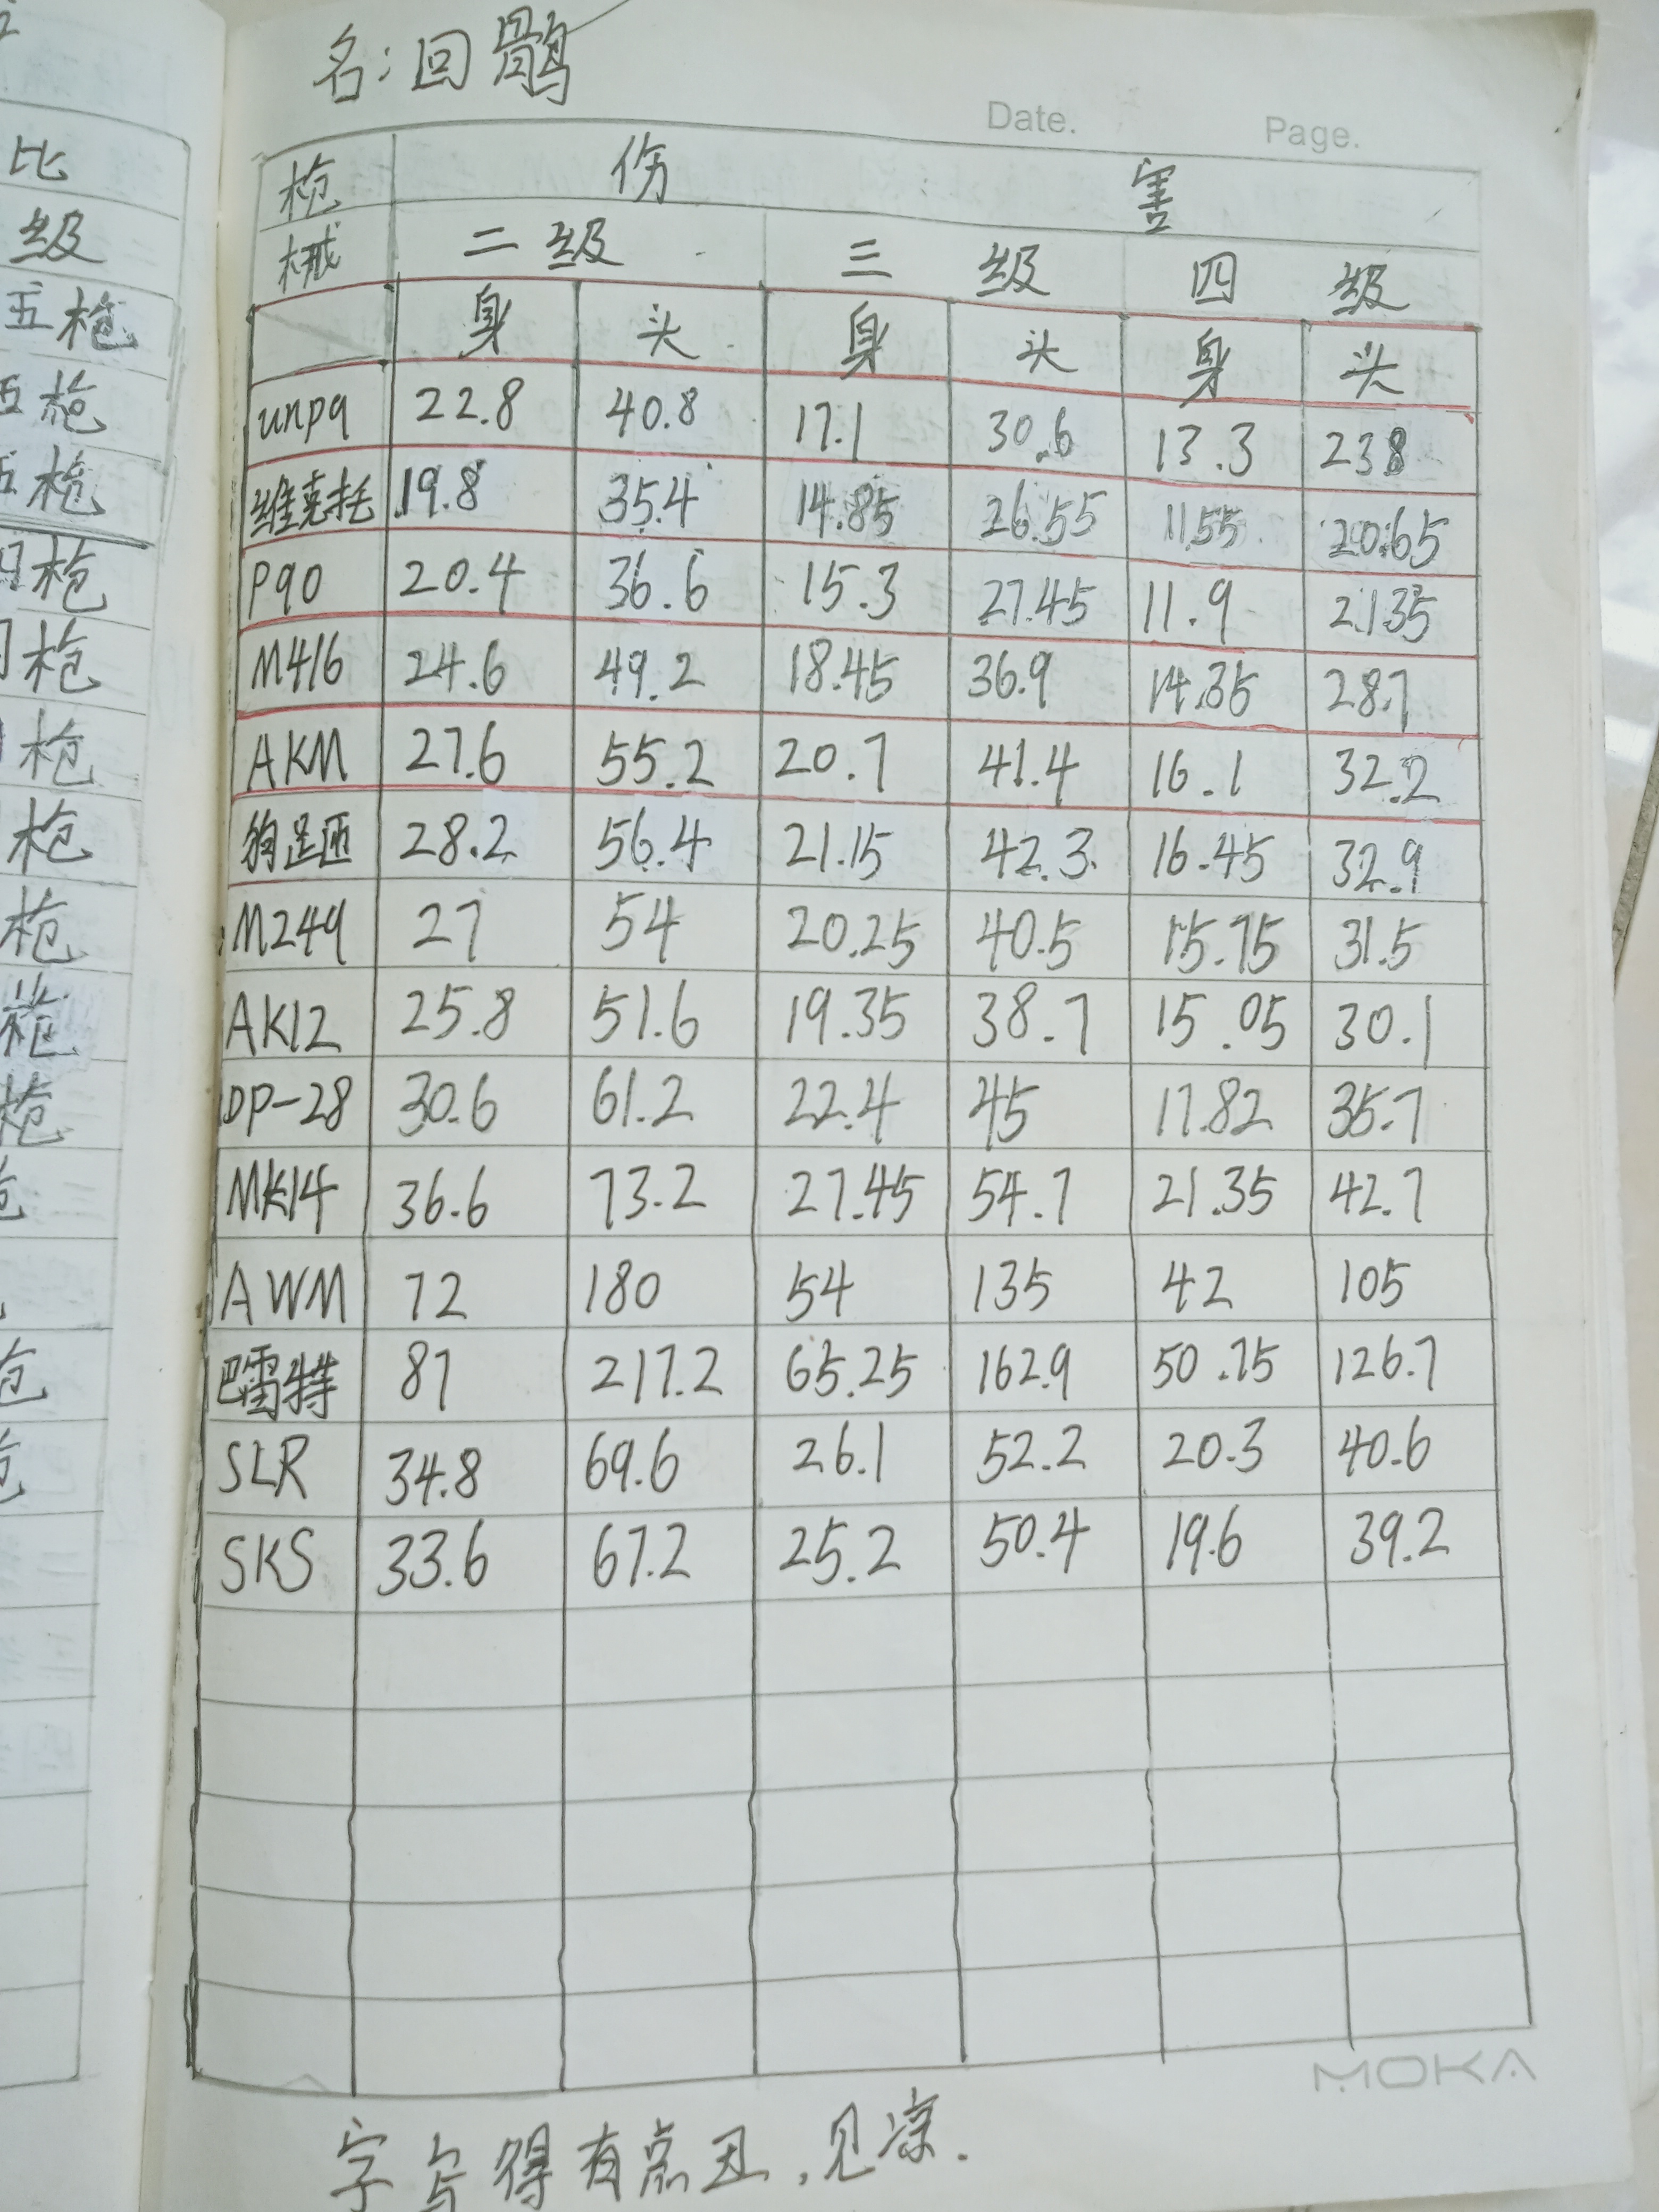 名:回鹘
Date. Page.
比
枪 伤 害
级
械 二级 三级 四级
五枪
身 头 身 头 身 头
五枪
unp9 22.8 40.8 17.1 30.6 13.3 238
五枪
维克托 19.8 35.4 14.85 26.55 1155 20.65
枪
P90 20.4 36.6 15.3 27.45 11.9 2135
枪
M416 24.6 49.2 18.45 36.9 14.35 28.7
枪
AKM 27.6 55.2 20.7 41.4 16.1 32.2
枪
狗足匝 28.2 56.4 21.15 42.3 16.45 32.9
枪
M249 27 54 20.25 40.5 15.75 31.5
枪
AK12 25.8 51.6 19.35 38.7 15.05 30.1
枪
DP-28 30.6 61.2 22.4 45 17.82 35.7
MK14 36.6 73.2 27.45 54.7 21.35 42.7
AWM 72 180 54 135 42 105
巴雷特 87 217.2 65.25 162.9 50.75 126.7
SLR 34.8 69.6 26.1 52.2 20.3 40.6
SKS 33.6 67.2 25.2 50.4 19.6 39.2
MOKA
字写得有点丑,见凉.